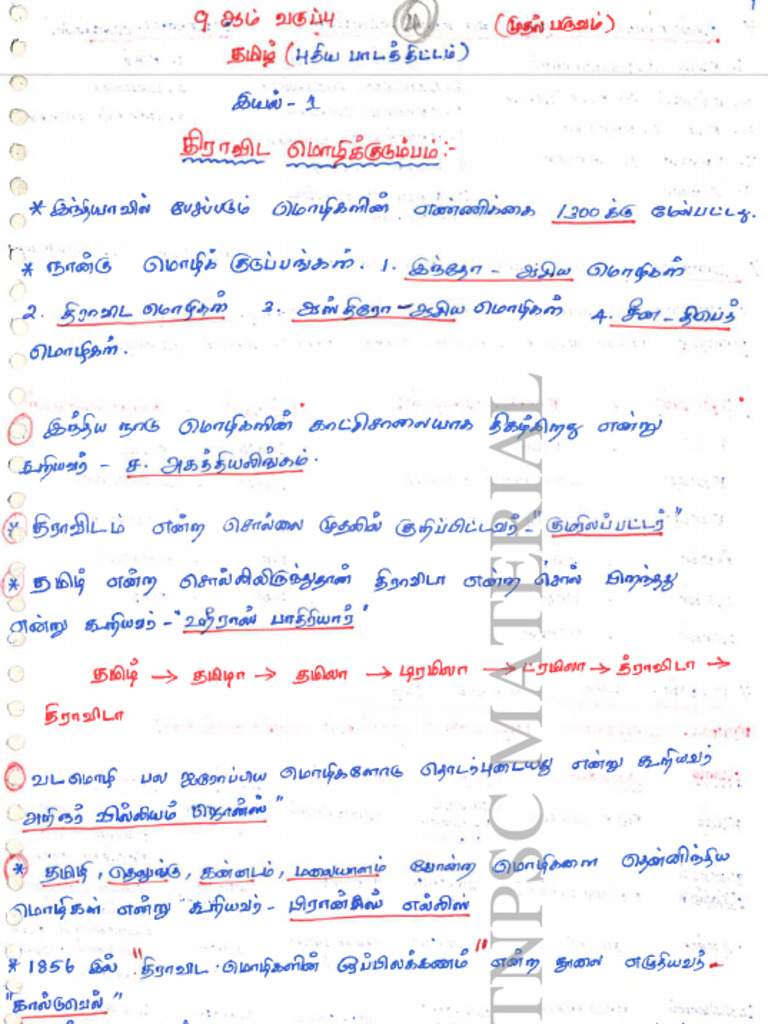 9 ஆம் வகுப்பு (முதல் பருவம்) 1
தமிழ் (புதிய பாடத்திட்டம்)
இயல் - 1
திராவிட மொழிக்குடும்பம் :-
* இந்தியாவில் பேசப்படும் மொழிகளின் எண்ணிக்கை 1300க்கு மேற்பட்டது.
* நான்கு மொழிக் குடும்பங்கள். 1. இந்தோ - ஆசிய மொழிகள்
2. திராவிட மொழிகள் 3. ஆஸ்திரோ - ஆசிய மொழிகள் 4. சீன - திபெத்
மொழிகள்.
இந்திய நாடு மொழிகளின் காட்சிசாலையாக திகழ்கிறது என்று
கூறியவர் - ச. அகத்தியலிங்கம்.
* திராவிடம் என்ற சொல்லை முதலில் குறிப்பிட்டவர் - "குமரிலப்பட்டர்"
* தமிழ் என்ற சொல்லிலிருந்துதான் திராவிடா என்ற சொல் பிறந்தது
என்று கூறியவர் - "ஹீராஸ் பாதிரியார்"
தமிழ் → தமிழா → தமிலா → டிரமிலா → ட்ரமிலா → த்ராவிடா →
திராவிடா
வடமொழி பல ஐரோப்பிய மொழிகளோடு தொடர்புடையது என்று கூறியவர்
அறிஞர் வில்லியம் ஜோன்ஸ்"
* தமிழ், தெலுங்கு, கன்னடம், மலையாளம் போன்ற மொழிகளை தென்னிந்திய
மொழிகள் என்று கூறியவர் - பிரான்சிஸ் எல்லிஸ்
* 1856 இல் "திராவிட மொழிகளின் ஒப்பிலக்கணம்" என்ற நூலை எழுதியவர் -
"கால்டுவெல்"
TNPSC MATERIAL